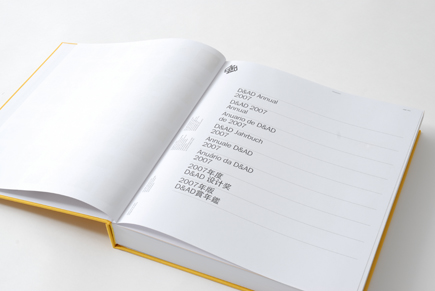 D&AD Annual
2007
D&AD 2007
Annual
Anuario de D&AD
de 2007
D&AD Jahrbuch
2007
Annuale D&AD
2007
Anuário da D&AD
2007
2007年度
D&AD 设计奖
2007年版
D&AD賞年鑑